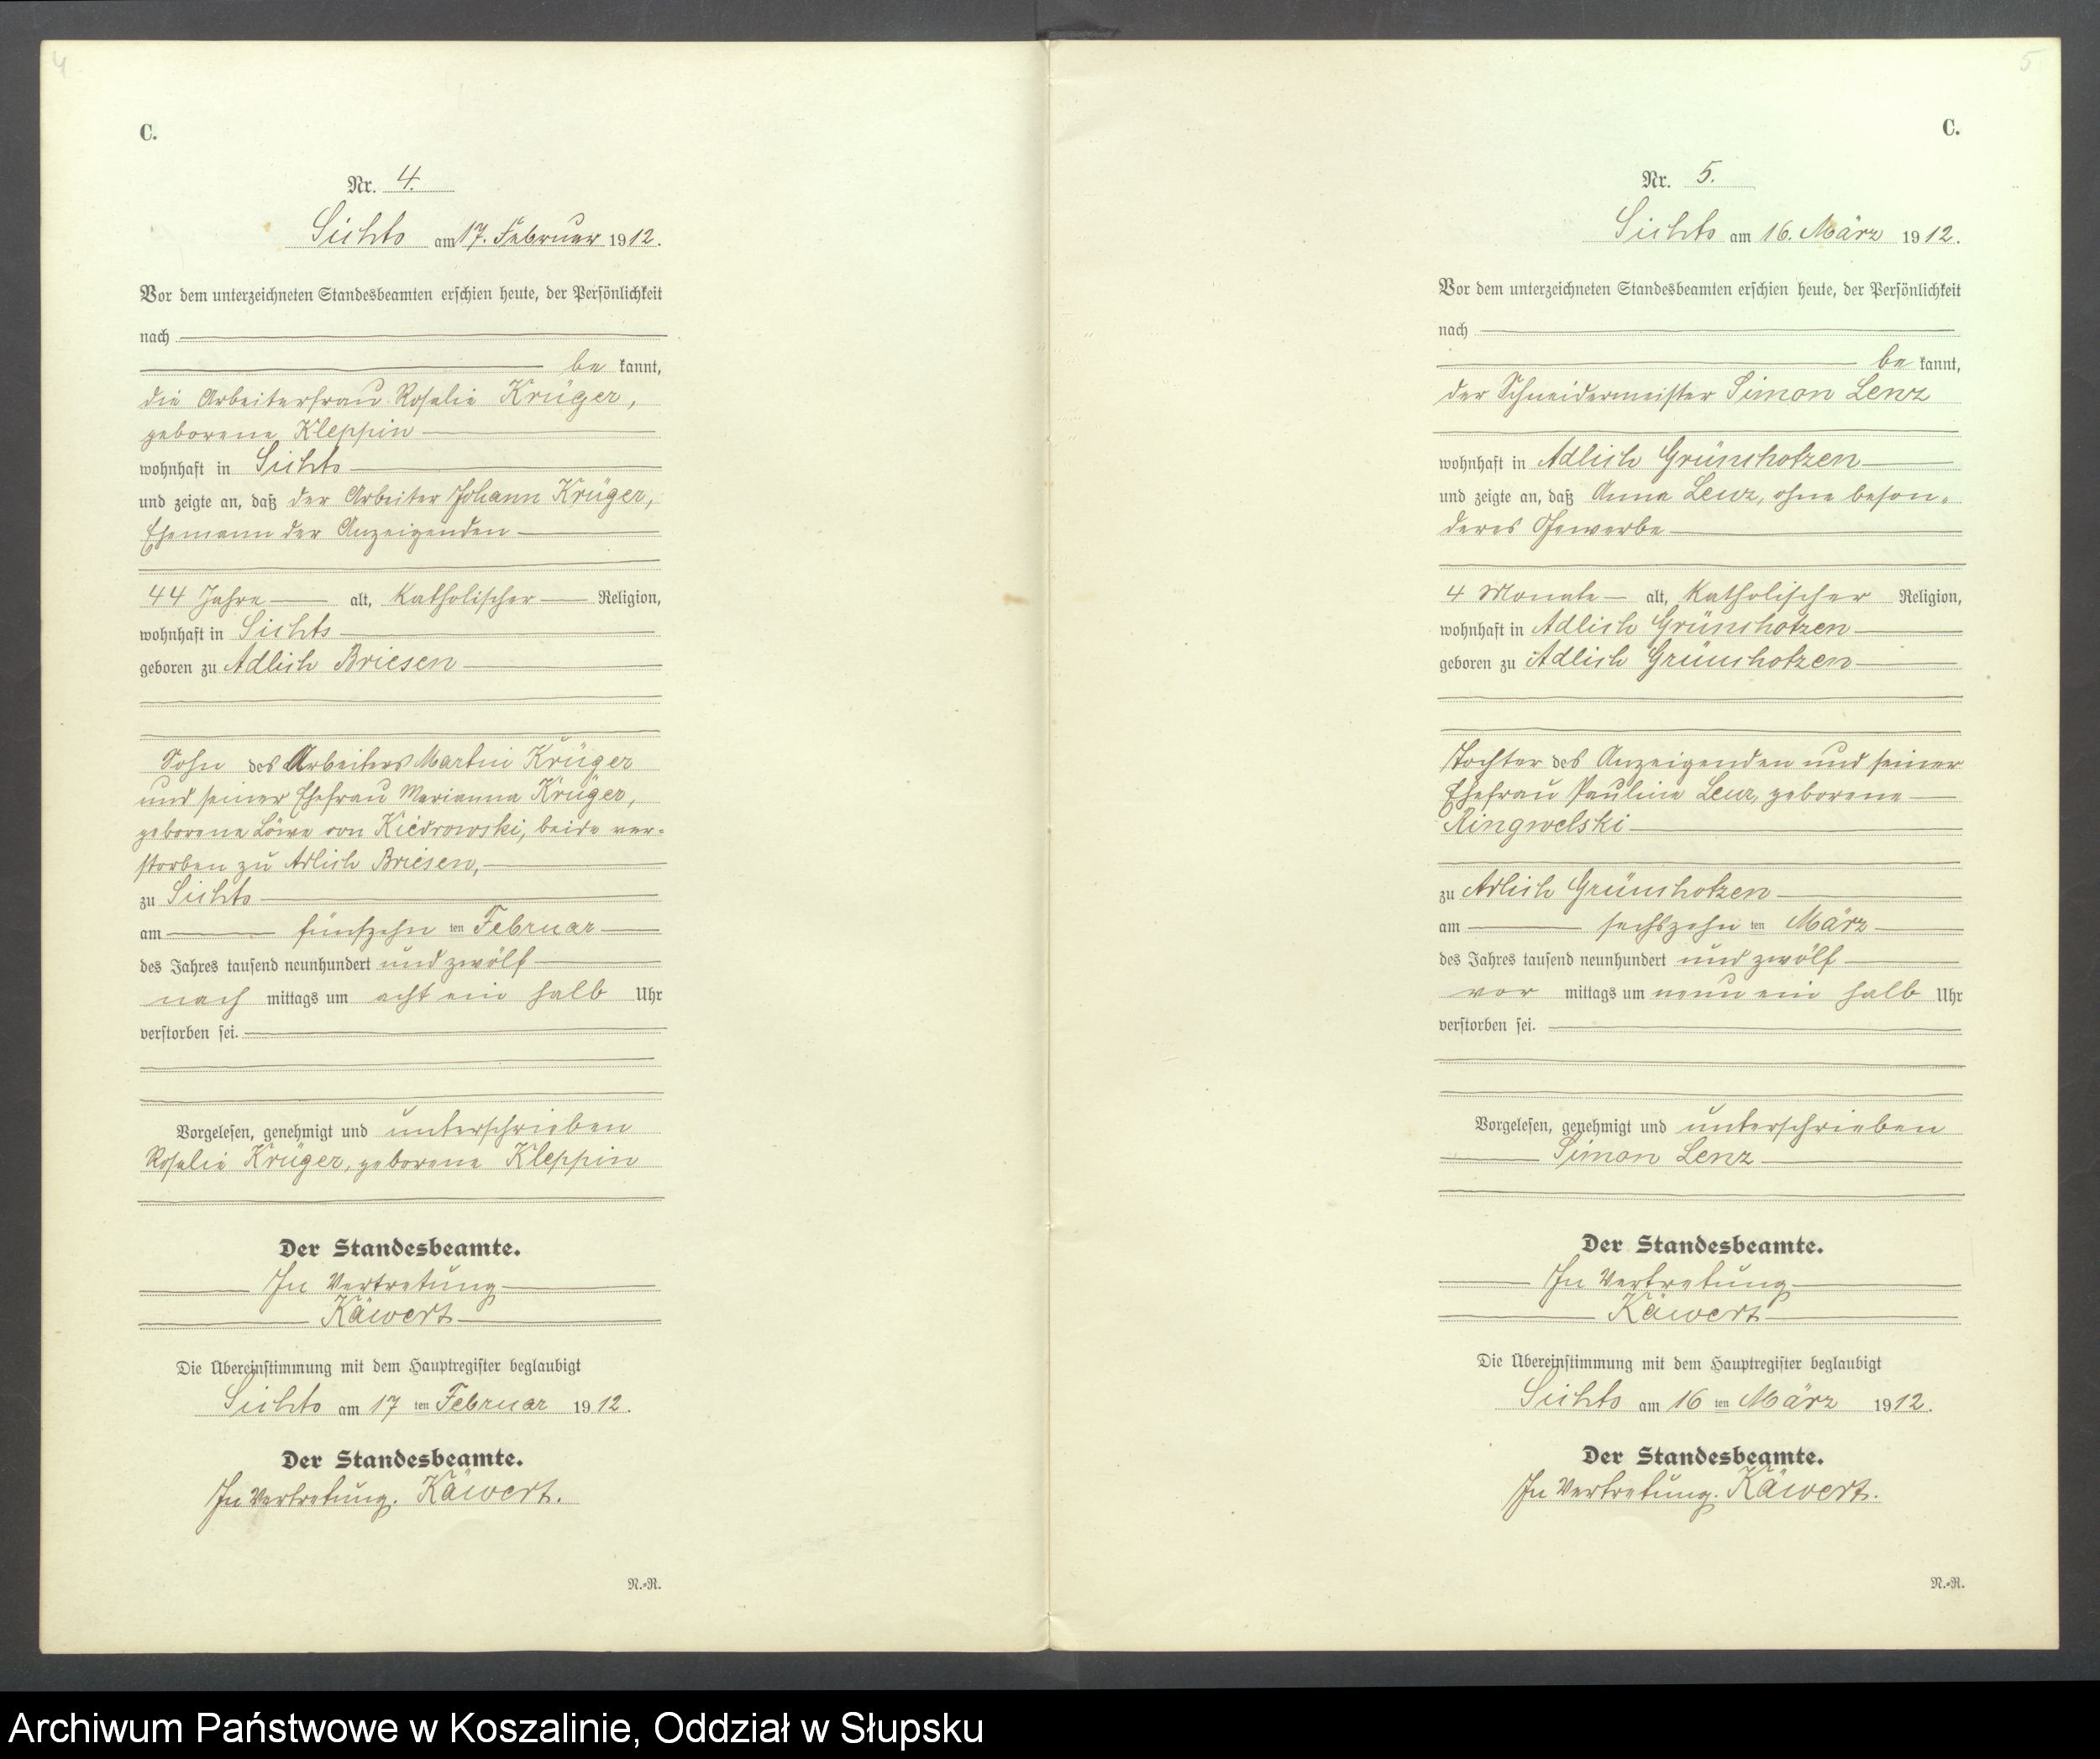 4
C.
Nr. 4.
Sichts am 17. Februar 1912.
Vor dem unterzeichneten Standesbeamten erschien heute, der Persönlichkeit
nach
be kannt,
die Arbeiterfrau Rosalie Krüger,
geborene Kleppin
wohnhaft in Sichts
und zeigte an, daß der Arbeiter Johann Krüger,
Ehemann der Anzeigenden
44 Jahre alt, katholischer Religion,
wohnhaft in Sichts
geboren zu Adlich Briesen
Sohn des Arbeiters Martin Krüger
und seiner Ehefrau Marianna Krüger,
geborene Löwe von Kiedrowski, beide ver-
storben zu Adlich Briesen,
zu Sichts
am fünfzehn ten Februar
des Jahres tausend neunhundert und zwölf
nach mittags um acht ein halb Uhr
verstorben sei.
Vorgelesen, genehmigt und unterschrieben
Rosalie Krüger, geborene Kleppin
Der Standesbeamte.
In Vertretung
Käwert
Die Übereinstimmung mit dem Hauptregister beglaubigt
Sichts am 17 ten Februar 1912.
Der Standesbeamte.
In Vertretung. Käwert.
N.-R.
5
C.
Nr. 5.
Sichts am 16. März 1912.
Vor dem unterzeichneten Standesbeamten erschien heute, der Persönlichkeit
nach
be kannt,
der Schneidermeister Simon Lenz
wohnhaft in Adlich Grünchotzen
und zeigte an, daß Anna Lenz, ohne beson-
deres Gewerbe
4 Monate alt, katholischer Religion,
wohnhaft in Adlich Grünchotzen
geboren zu Adlich Grünchotzen
Tochter des Anzeigenden und seiner
Ehefrau Pauline Lenz, geborene
Ringwelski
zu Adlich Grünchotzen
am sechszehn ten März
des Jahres tausend neunhundert und zwölf
vor mittags um neun ein halb Uhr
verstorben sei.
Vorgelesen, genehmigt und unterschrieben
Simon Lenz
Der Standesbeamte.
In Vertretung
Käwert
Die Übereinstimmung mit dem Hauptregister beglaubigt
Sichts am 16 ten März 1912.
Der Standesbeamte.
In Vertretung. Käwert.
N.-R.
Archiwum Państwowe w Koszalinie, Oddział w Słupsku